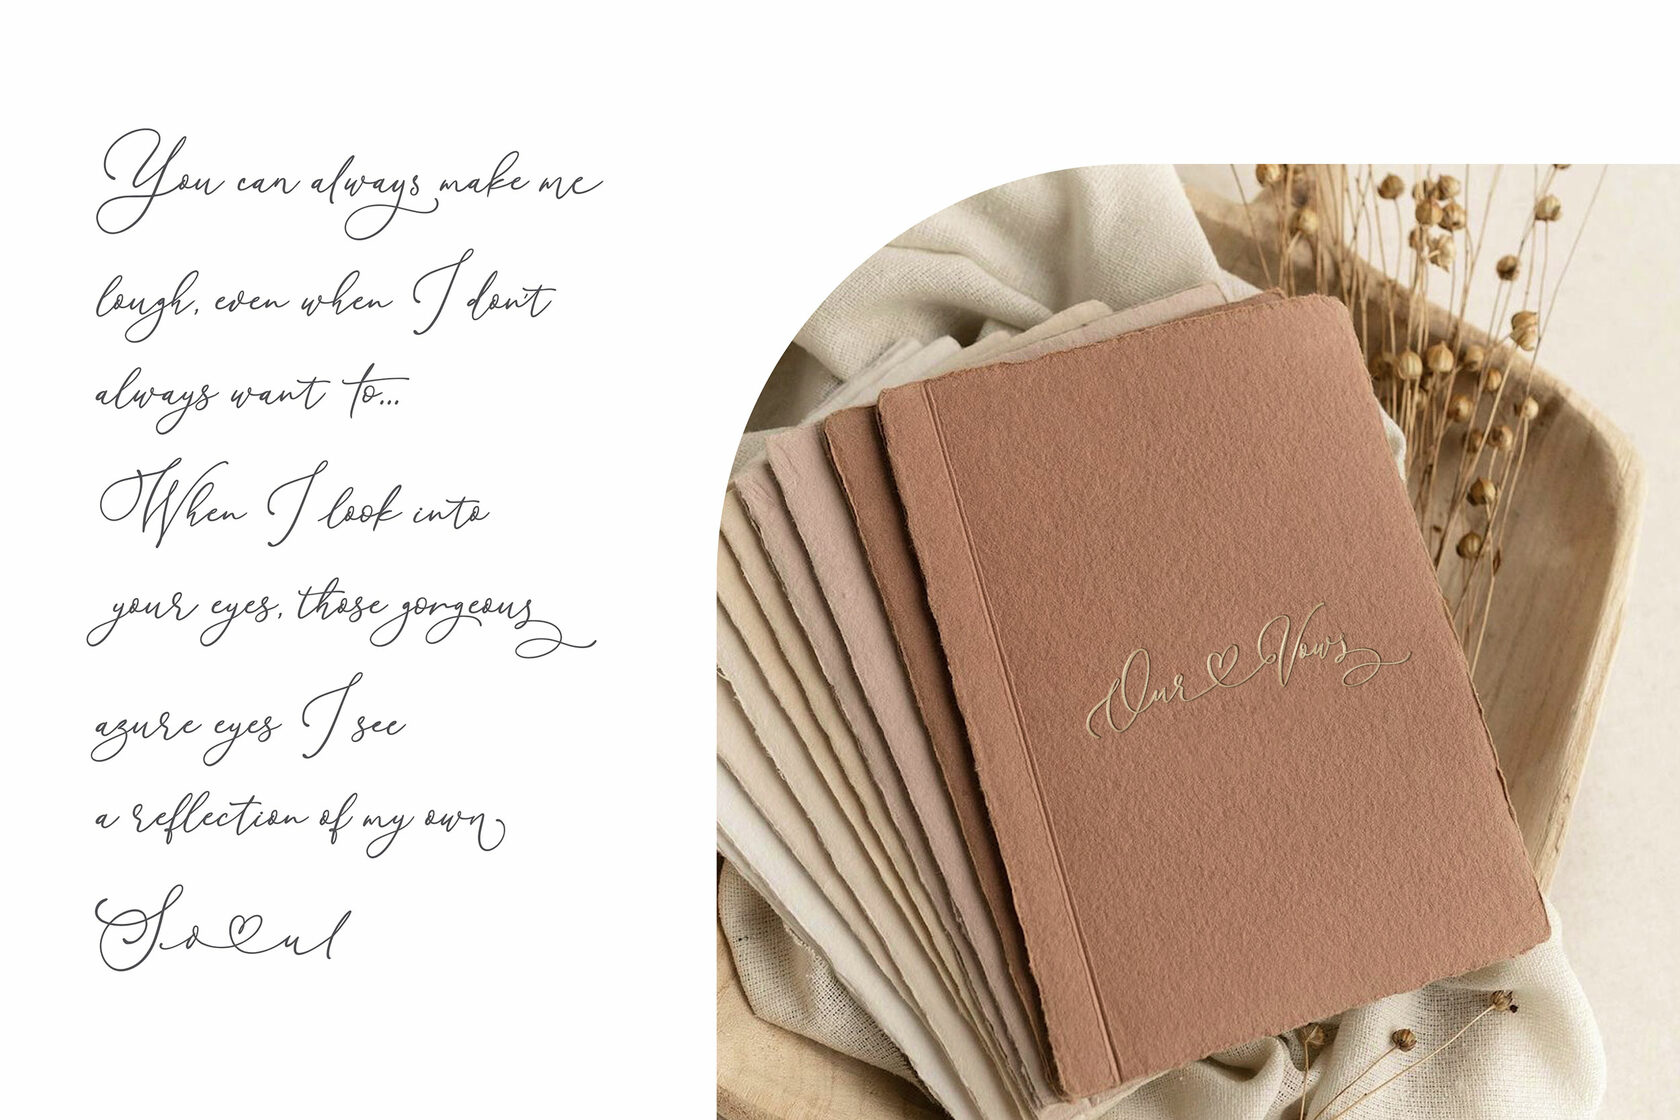 You can always make me
lough, even when I don't
always want to...
When I look into
your eyes, those gorgeous
azure eyes I see
a reflection of my own
Soul
Our Vows